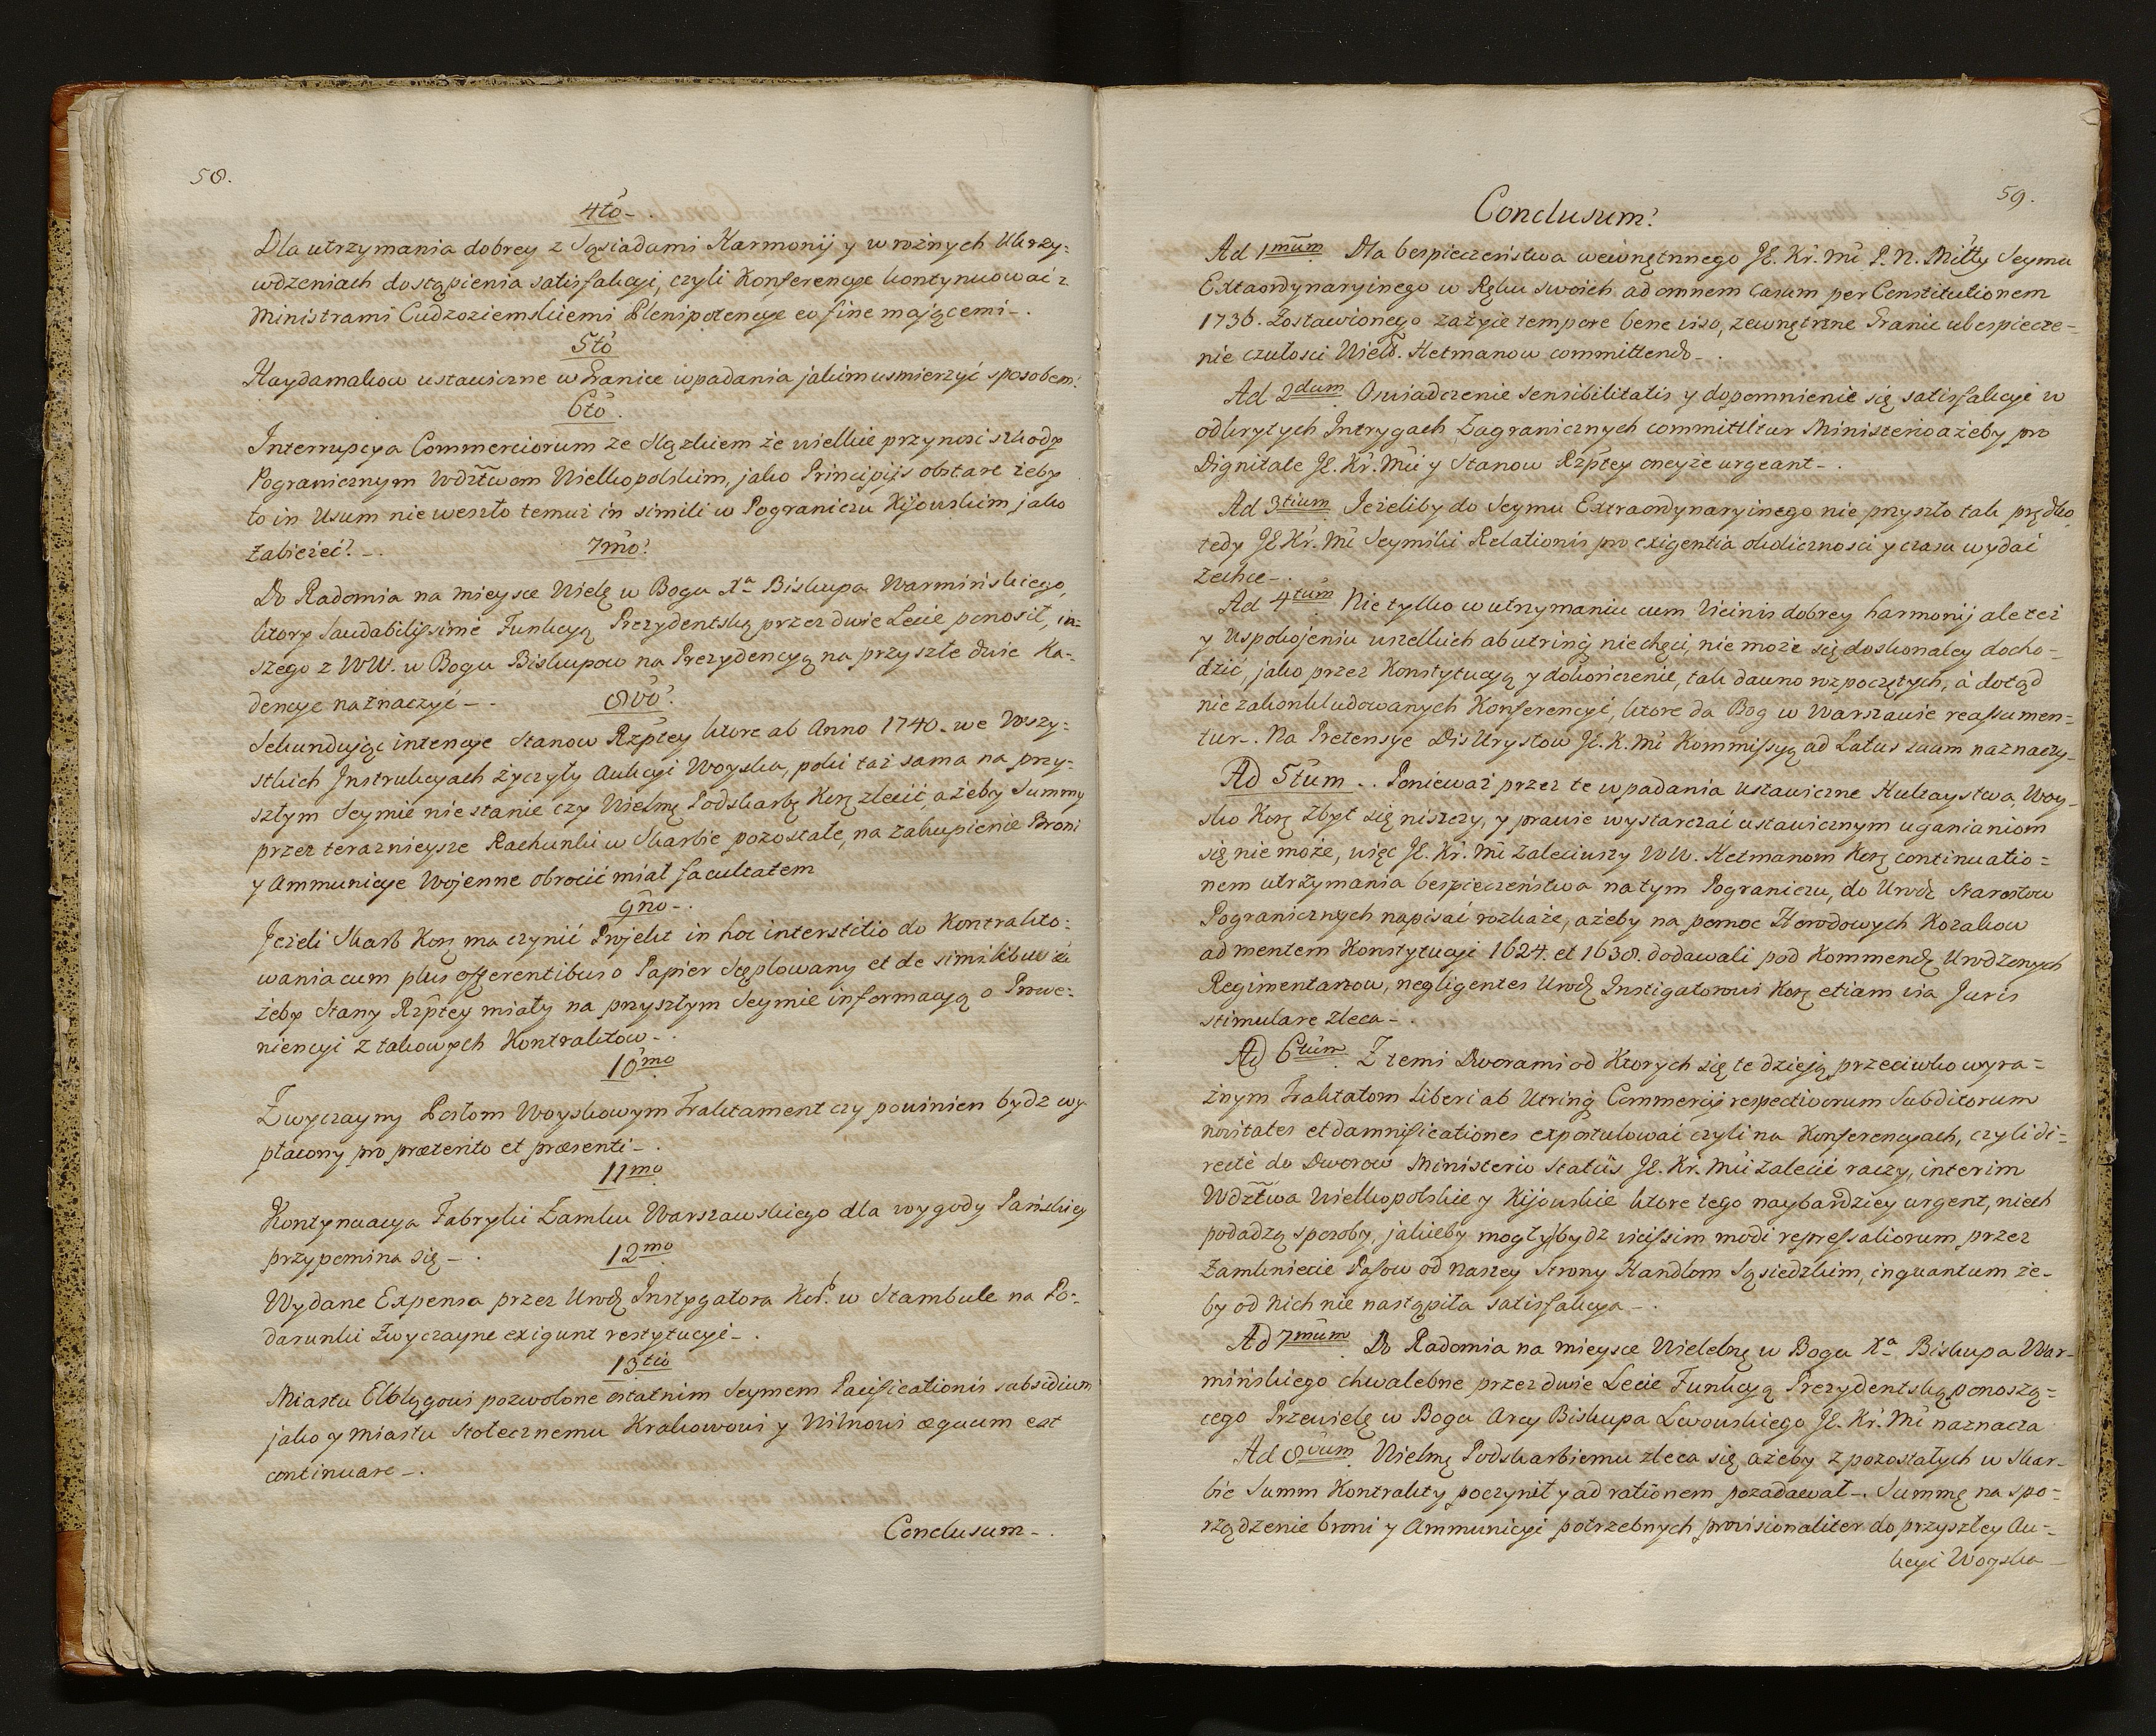 58.
4to.
Dla utrzymania dobrey z Sąsiadami Harmonij y w rożnych Ukrzy-
wdzeniach dostąpienia satisfakcyi, czyli Konferencye kontynuować z
Ministrami Cudzoziemskiemi Plenipotencye eo fine mającemi.
5to
Haydamakow ustawiczne w Granice wpadania jakim usmierzyć sposobem.
6to.
Interrupcya Commerciorum ze Slązkiem że wielkie przynosi szkody
Pogranicznym Wdztwom Wielkopolskim, jako Principijs obstare żeby
to in Usum nie weszło temuż in simili w Pograniczu Kijowskim jako
zabieżeć.
7mo.
Do Radomia na mieysce Wielę w Bogu Xa Biskupa Warmińskiego,
ktory laudabilissime Funkcyą Prezydentską przez dwie Lecie ponosił, in-
szego z WW. w Bogu Biskupow na Prezydencyą na przyszłe dwie Ka-
dencye naznaczyć.
8vo.
Sekundując intencye Stanow Rzptey ktore ab Anno 1740. we Wszy-
stkich Instrukcyach życzyły Aukcyi Woyska, poki taż sama na przy-
szłym Seymie nie stanie czy Wielmę Podskarbę Korę zlecić, ażeby Summy
przez teraznieysze Rachunki w Skarbie pozostałe, na zakupienie Broni
y Ammunicye Wojenne obrocić miał facultatem
9no.
Jeżeli Skarb Korę ma czynić Projekt in hoc interstitio do Kontrakto-
wania cum plus offerentibus o Papier Stęplowany et de similibus
żeby Stany Rzptey miały na przyszłym Seymie informacyą o Prowe-
niencyi z takowych Kontraktow.
10mo
Zwyczayny Posłom Woyskowym Traktament czy powinien bydz wy
płacony pro præterito et præsenti.
11mo
Kontynuacya Fabryki Zamku Warszawskiego dla wygody Pańskiey
przypomina się.
12mo
Wydane Expensa przez Urodz Instygatora Kor. w Stambule na Po-
darunki Zwyczayne exigunt restytucyi.
13tio
Miastu Elblągowi pozwolone ostatnim Seymem Pacificationis subsidium
jako y Miastu Stołecznemu Krakowowi y Wilnowi æquum est
continuare.
Conclusum.
59.
Conclusum.
Ad 1mum. Dla bespieczeństwa wewnętnnego JE. Kr. Mć P. N. Miłły Seymu
Extaordynaryinego w Ręku swoich ad omnem casum per Constitutionem
1736. Zostawionego zażyie tempore bene viso, zewnętrzne Granic ubespiecze-
nie czułosci Wielb. Hetmanow committendo.
Ad 2dum. Oswiadczenie sensibilitatis y dopomnienie się satisfakcyi w
odkrytych Intrygach Zagranicznych committitur Ministerio ażeby pro
Dignitate JE. Kr. Mći y Stanow Rzptey oneyże urgeant.
Ad 3tium. Jeżeliby do Seymu Extraordynaryinego nie przyszło tak prędko
tedy JE Kr. Mć Seymiki Relationis pro exigentia okolicznosci y czasu wydać
zechce.
Ad 4tum. Nie tylko w utrzymaniu cum Vicinis dobrey harmonij ale też
y Uspokojeniu wszelkich ab utrinq niechęci, nie może się doskonaley docho-
dzić, jako przez Konstytucyą y dokończenie, tak dawno rozpoczętych, á dotąd
nie zakonkludowanych Konferencyi, ktore da Bog w Warszawie reassumen-
tur. Na Pretensye Dis Urystow JE. K. Mć Kommissyą ad Latus suum naznaczy.
Ad 5tum.. Ponieważ przez te wpadania ustawiczne Hultaystwa, Woy-
sko Korę zbyt się niszczy, y prawie wystarczać ustawicznym uganianiom
się nie może, więc JE. Kr. Mć zaleciwszy WW. Hetmanom Korę continuatio-
nem utrzymania bespieczeństwa na tym Pograniczu, do Urodz Starostow
Pogranicznych napisać rozkaże, ażeby na pomoc Horodowych Kozakow
ad mentem Konstytucyi 1624. et 1638. dodawali pod Kommendę Urodzonych
Regimentarzow, negligentes Urodz Instigatorowi Korę etiam via Juris
stimulare zleca.
Ad 6tum. Z temi Dworami od Ktorych się te dzieją przeciwko wyra-
żnym Traktatom liberi ab Utrinq Commercij respectivorum Subditorum
novitates et damnificationes expostulować czyli na Konferencyach, czyli di-
recté do Dworow Ministerio Statûs JE. Kr. Mći zalecić raczy, interim
Wdztwa Wielkopolskie y Kijowskie ktore tego naybardziey urgent, niech
podadzą sposoby, jakieby mogły bydz vicissim modi repressaliorum przez
Zamkniecie Passow od Naszey Strony Handlom Sąsiedzkim, inquantum że-
by od nich nie nastąpiła satisfakcya.
Ad 7mum. Do Radomia na mieysce Wielebnę w Bogu Xa Biskupa War-
mińskiego chwalebne przez dwie Lecie Funkcyą Prezydentską ponoszą-
cego Przewielę w Bogu Arcy Biskupa Lwowskiego JE. Kr. Mć naznacza
Ad 8vum. Wielmę Podskarbiemu zleca się ażeby z pozostałych w Skar-
bie Summ Kontrakty poczynił y ad rationem pozadawał. Summę na spo-
rządzenie broni y Ammunicyi potrzebnych provisionaliter do przyszłey Au-
kcyi Woyska